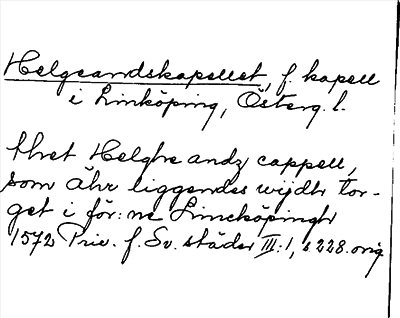 Helgeandskapellet, f. kapell
i Linköping, Österg. l.
thet Helghe andz cappell,
som ähr liggendes wijdh tor-
get i för:ne Linneköpingh
1572 Priv. f. Sv. städer III:1, s 228. orig.